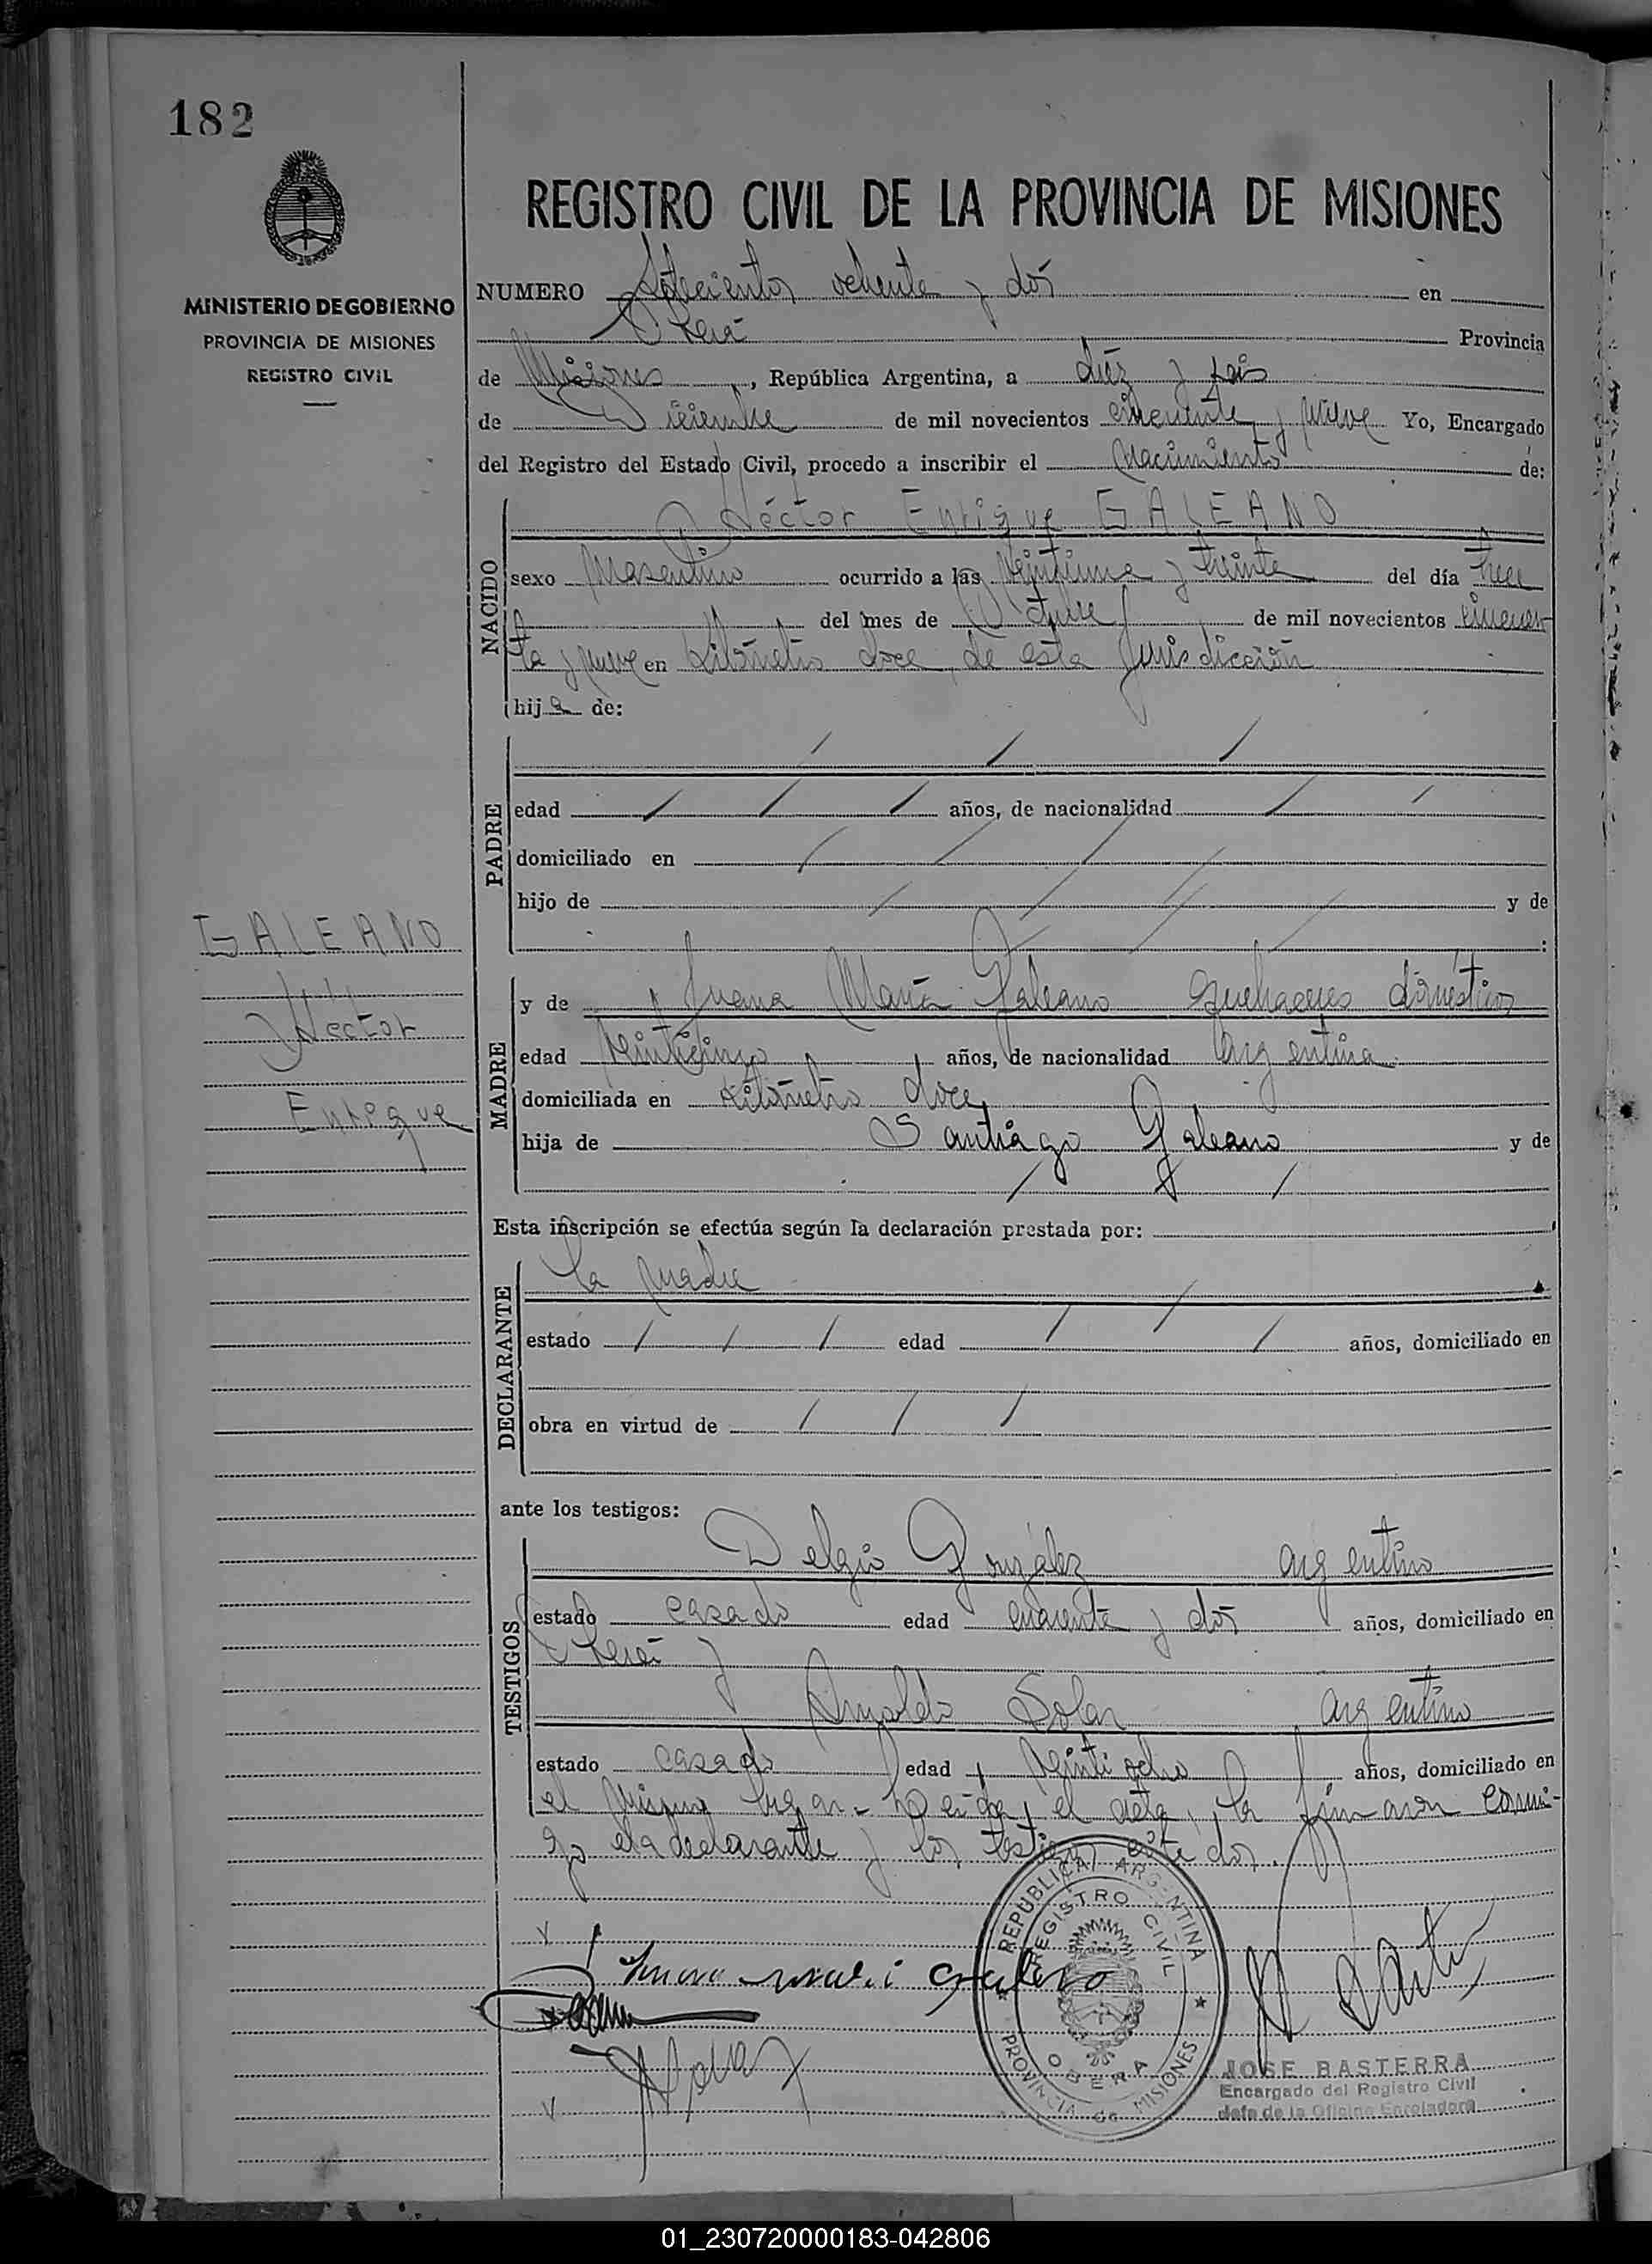 182
MINISTERIO DE GOBIERNO
PROVINCIA DE MISIONES
REGISTRO CIVIL
GALEANO
Héctor
Enrique
REGISTRO CIVIL DE LA PROVINCIA DE MISIONES
NUMERO Setecientos ochenta y dos en
Oberá Provincia
de Misiones, República Argentina, a diez y seis
de Diciembre de mil novecientos cincuenta y nueve Yo, Encargado
del Registro del Estado Civil, procedo a inscribir el Nacimiento de:
NACIDO
Héctor Enrique GALEANO
sexo Masculino ocurrido a las Veintiuna y treinta del día trece
del mes de Octubre de mil novecientos cincuen
ta y nueve en Kilómetro doce, de esta Jurisdicción
hijo de:
PADRE
edad años, de nacionalidad
domiciliado en
hijo de y de
:
MADRE
y de Juana María Galeano quehaceres domésticos
edad Veinticinco años, de nacionalidad Argentina
domiciliada en Kilómetro doce
hija de Santiago Galeano y de
Esta inscripción se efectúa según la declaración prestada por:
DECLARANTE
la madre
estado edad años, domiciliado en
obra en virtud de
ante los testigos:
TESTIGOS
Delgio González argentino
estado casado edad cuarenta y dos años, domiciliado en
Oberá y
Arnoldo Solar argentino
estado casado edad Veintiocho años, domiciliado en
el mismo lugar.- Leída el acta, la firmaron conmi-
go la declarante y los testigos citados.
REPUBLICA ARGENTINA
REGISTRO CIVIL
OBERA
PROVINCIA de MISIONES
Juana Galeano
JOSE BASTERRA
Encargado del Registro Civil
Jefe de la Oficina Enroladora
01_230720000183-042806